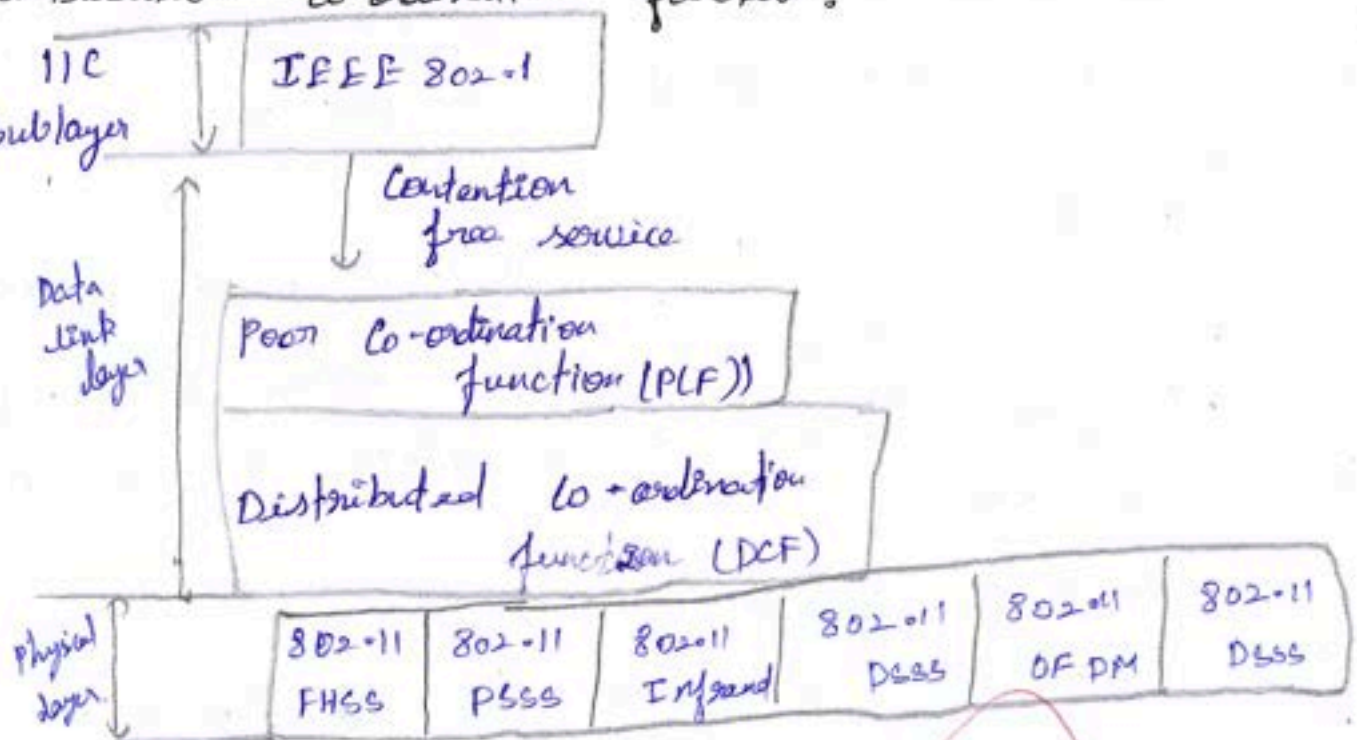 11C
sublayer
IEEE 802.1
Contention
free service
Data
link
layer
Poor Co-ordination
function (PLF))
Distributed Co-ordination
function (DCF)
Physical
layer
802.11
FHSS
802.11
PSSS
802.11
Infrand
802.11
DSSS
802.11
OFDM
802.11
DSSS